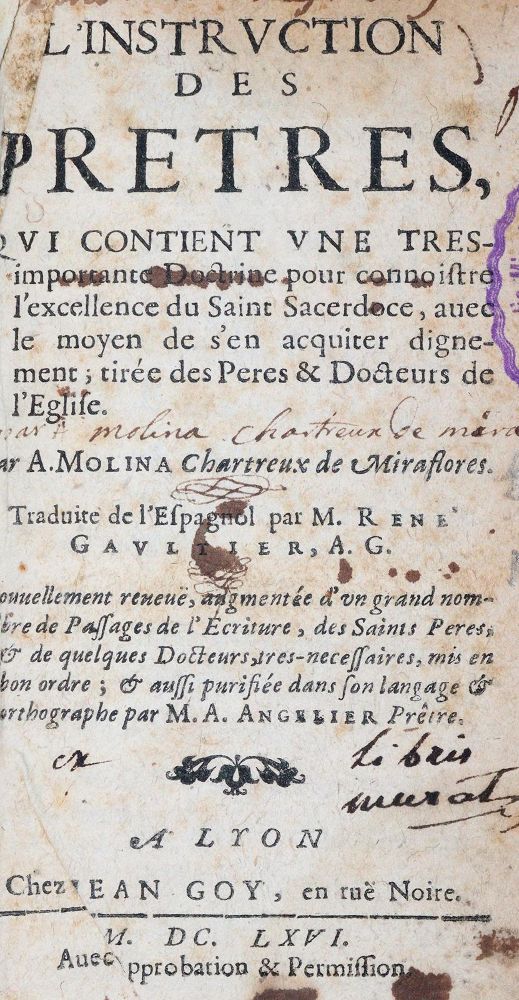 L'INSTRVCTION
DES
PRETRES,
QVI CONTIENT VNE TRES-
importante Doctrine pour connoistre
l'excellence du Saint Sacerdoce, avec
le moyen de s'en acquiter digne-
ment ; tirée des Peres & Docteurs de
l'Eglise.
molina chartreux de mira
ar A. MOLINA Chartreux de Miraflores.
Traduite de l'Espagnol par M. RENE
GAVLTIER, A. G.
ouuellement reueuë, augmentée d'vn grand nom-
bre de Passages de l'Ecriture, des Saints Peres,
& de quelques Docteurs, tres-necessaires, mis en
bon ordre ; & aussi purifiée dans son langage &
orthographe par M. A. ANGELIER Prêtre.
ex libris
murat
A LYON
Chez JEAN GOY, en ruë Noire.
M. DC. LXVI.
Auec pprobation & Permission.